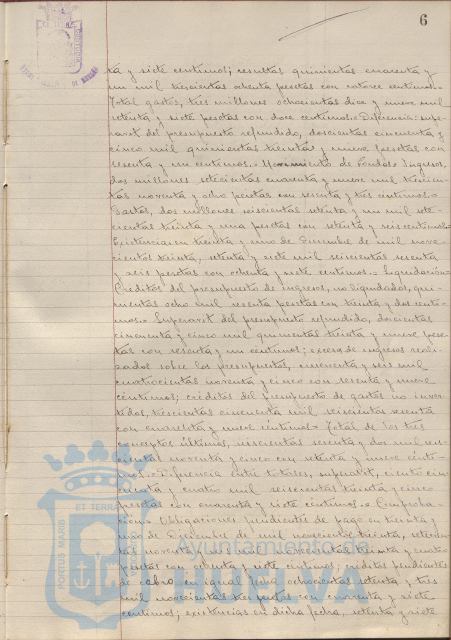 6
ta y siete centimos; resultas quinientas cuarenta y
un mil trescientas ochenta pesetas con catorce centimos.=
Total gastos, tres millones ochocientas diez y nueve mil
setenta y siete pesetas con doce centimos.= Diferencia: supe-
ravit del presupuesto refundido, doscientas cincuenta y
cinco mil quinientas treinta y nueve pesetas con
sesenta y un centimos.= Movimiento de Fondos Ingresos,
dos millones setecientas cuarenta y nueve mil trescien-
tas noventa y ocho pesetas con sesenta y tres centimos.=
Gastos, dos millones seiscientas setenta y un mil sete-
cientas treinta y una pesetas con setenta y seis centimos.=
Existencia en treinta y uno de Diciembre de mil nove-
cientos treinta, setenta y siete mil seiscientas sesenta
y seis pesetas con ochenta y siete centimos.= Liquidación=
Créditos del presupuesto de ingresos, no liquidados, qui-
nientas ocho mil sesenta pesetas con treinta y dos centi-
mos.= Superavit del presupuesto refundido, doscientas
cincuenta y cinco mil quinientas treinta y nueve pese-
tas con sesenta y un centimos; exceso de ingresos reali-
zados sobre los presupuestos, cincuenta y seis mil
cuatrocientas noventa y cinco con sesenta y nueve
centimos; créditos del presupuesto de gastos no inver-
tidos, trescientas cincuenta mil seiscientas sesenta
con cuarenta y nueve centimos.= Total de los tres
conceptos últimos, seiscientas sesenta y dos mil seis-
cientas noventa y cinco con setenta y nueve centi-
mos.= Diferencia entre totales, superavit, ciento cin-
cuenta y cuatro mil seiscientas treinta y cinco
pesetas con cuarenta y siete centimos.= Comproba-
ción= Obligaciones pendientes de pago en treinta y
uno de Diciembre de mil novecientos treinta, setecien-
tas noventa y mil trescientas treinta y cuatro
pesetas con ochenta y siete centimos; créditos pendientes
de cobro en igual fecha ochocientas setenta y tres
mil novecientas tres pesetas con cuarenta y siete
centimos; existencias en dicha fecha, setenta y siete
PORTUS MARIS ET TERRAE
Ayuntamiento de